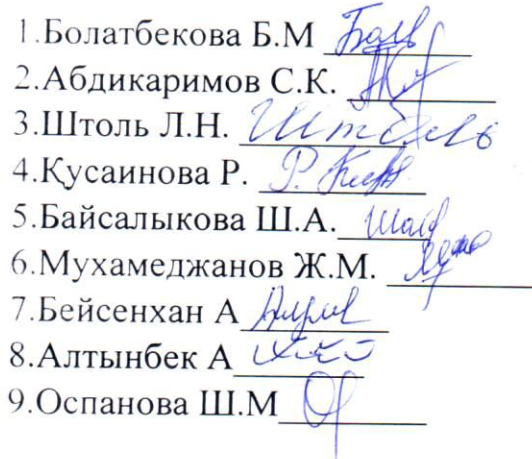 1.Болатбекова Б.М
2.Абдикаримов С.К.
3.Штоль Л.Н. Штоль
4.Қусаинова Р.
5.Байсалыкова Ш.А.
6.Мухамеджанов Ж.М.
7.Бейсенхан А
8.Алтынбек А
9.Оспанова Ш.М